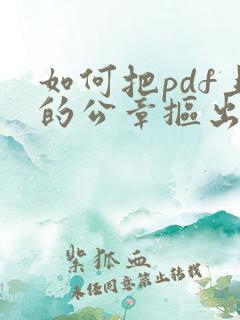 如何把pdf
的公章抠出
紫狐血
未经同意禁止转载